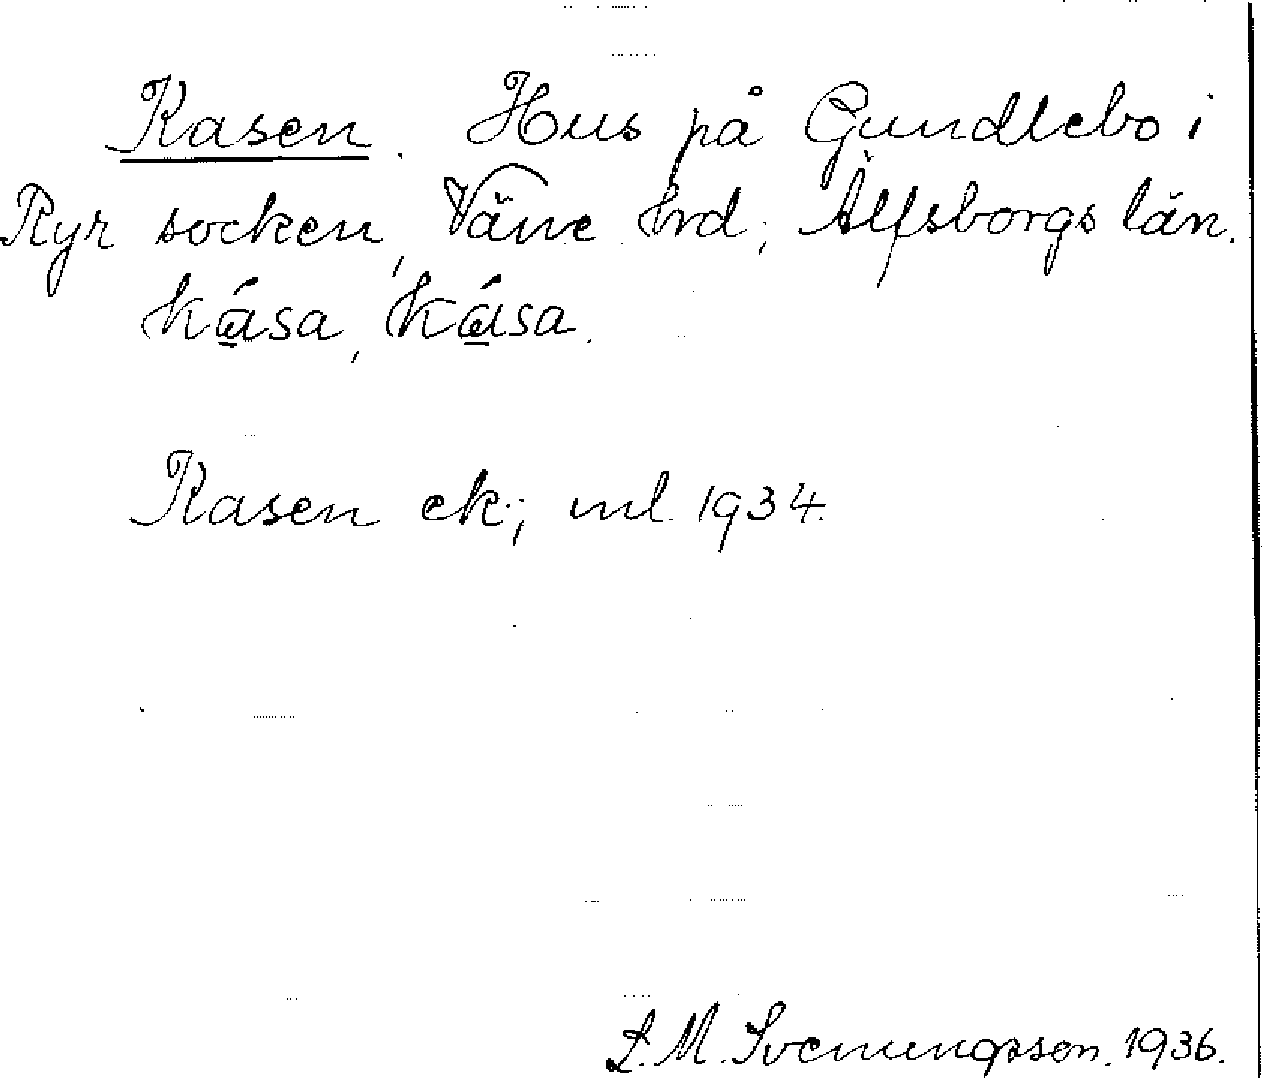 Kasen. Hus på Gundlebo i
Ryr socken, Väne hrd, Älfsborgs län.
kása, kása.
Kasen ek; ml. 1934.
L. M. Svenungsson. 1936.